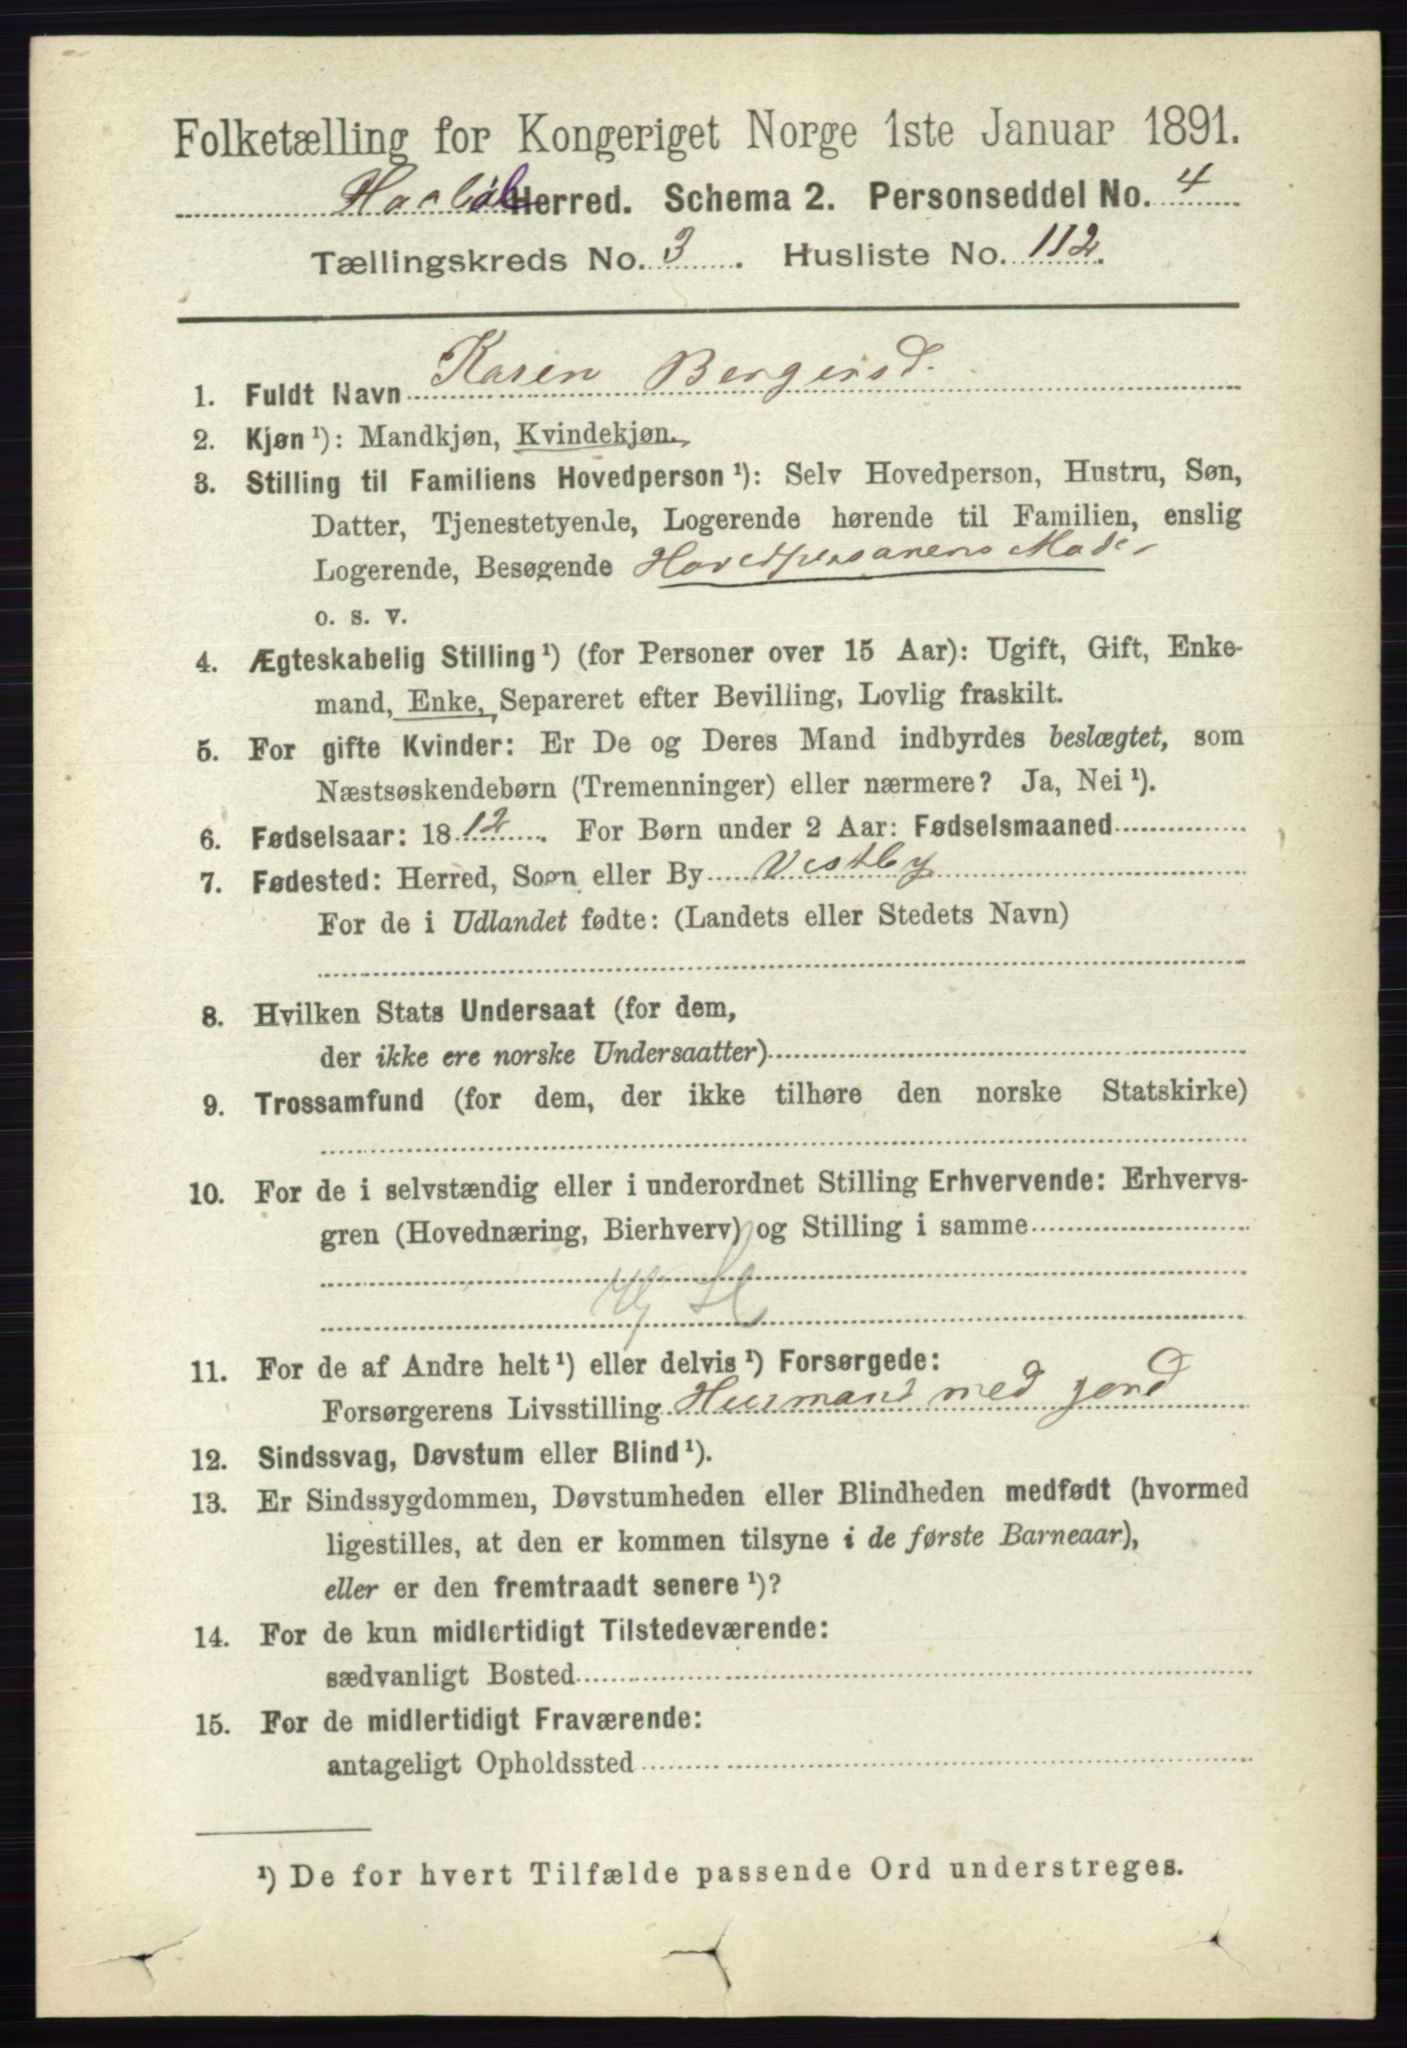 Folketælling for Kongeriget Norge 1ste Januar 1891.
Herred. Schema 2. Personseddel No. 4
Tællingskreds No. 3. Husliste No. 112.
1. Fuldt Navn Karen Bergersd.
2. Kjøn ¹): Mandkjøn, Kvindekjøn.
3. Stilling til Familiens Hovedperson ¹): Selv Hovedperson, Hustru, Søn,
Datter, Tjenestetyende, Logerende hørende til Familien, enslig
Logerende, Besøgende Hovedpersonens Moder
o. s. v.
4. Ægteskabelig Stilling ¹) (for Personer over 15 Aar): Ugift, Gift, Enke-
mand, Enke, Separeret efter Bevilling, Lovlig fraskilt.
5. For gifte Kvinder: Er De og Deres Mand indbyrdes beslægtet, som
Næstsøskendebørn (Tremenninger) eller nærmere? Ja, Nei ¹).
6. Fødselsaar: 1812. For Børn under 2 Aar: Fødselsmaaned
7. Fødested: Herred, Sogn eller By Vestby
For de i Udlandet fødte: (Landets eller Stedets Navn)
8. Hvilken Stats Undersaat (for dem,
der ikke ere norske Undersaatter)
9. Trossamfund (for dem, der ikke tilhøre den norske Statskirke)
10. For de i selvstændig eller i underordnet Stilling Erhvervende: Erhvervs-
gren (Hovednæring, Bierhverv) og Stilling i samme
11. For de af Andre helt ¹) eller delvis ¹) Forsørgede:
Forsørgerens Livsstilling Husmand med jord
12. Sindssvag, Døvstum eller Blind ¹).
13. Er Sindssygdommen, Døvstumheden eller Blindheden medfødt (hvormed
ligestilles, at den er kommen tilsyne i de første Barneaar),
eller er den fremtraadt senere ¹)?
14. For de kun midlertidigt Tilstedeværende:
sædvanligt Bosted
15. For de midlertidigt Fraværende:
antageligt Opholdssted
¹) De for hvert Tilfælde passende Ord understreges.